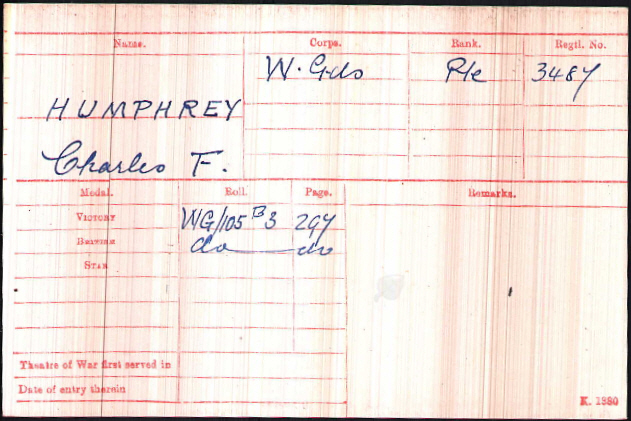 Name. Corps. Rank. Regtl. No.
W. Gds Pte 3487
HUMPHREY
Charles F.
Medal. Roll. Page. Remarks.
VICTORY WG/105 B3 297
BRITISH do do
STAR
Theatre of War first served in
Date of entry therein
K. 1380